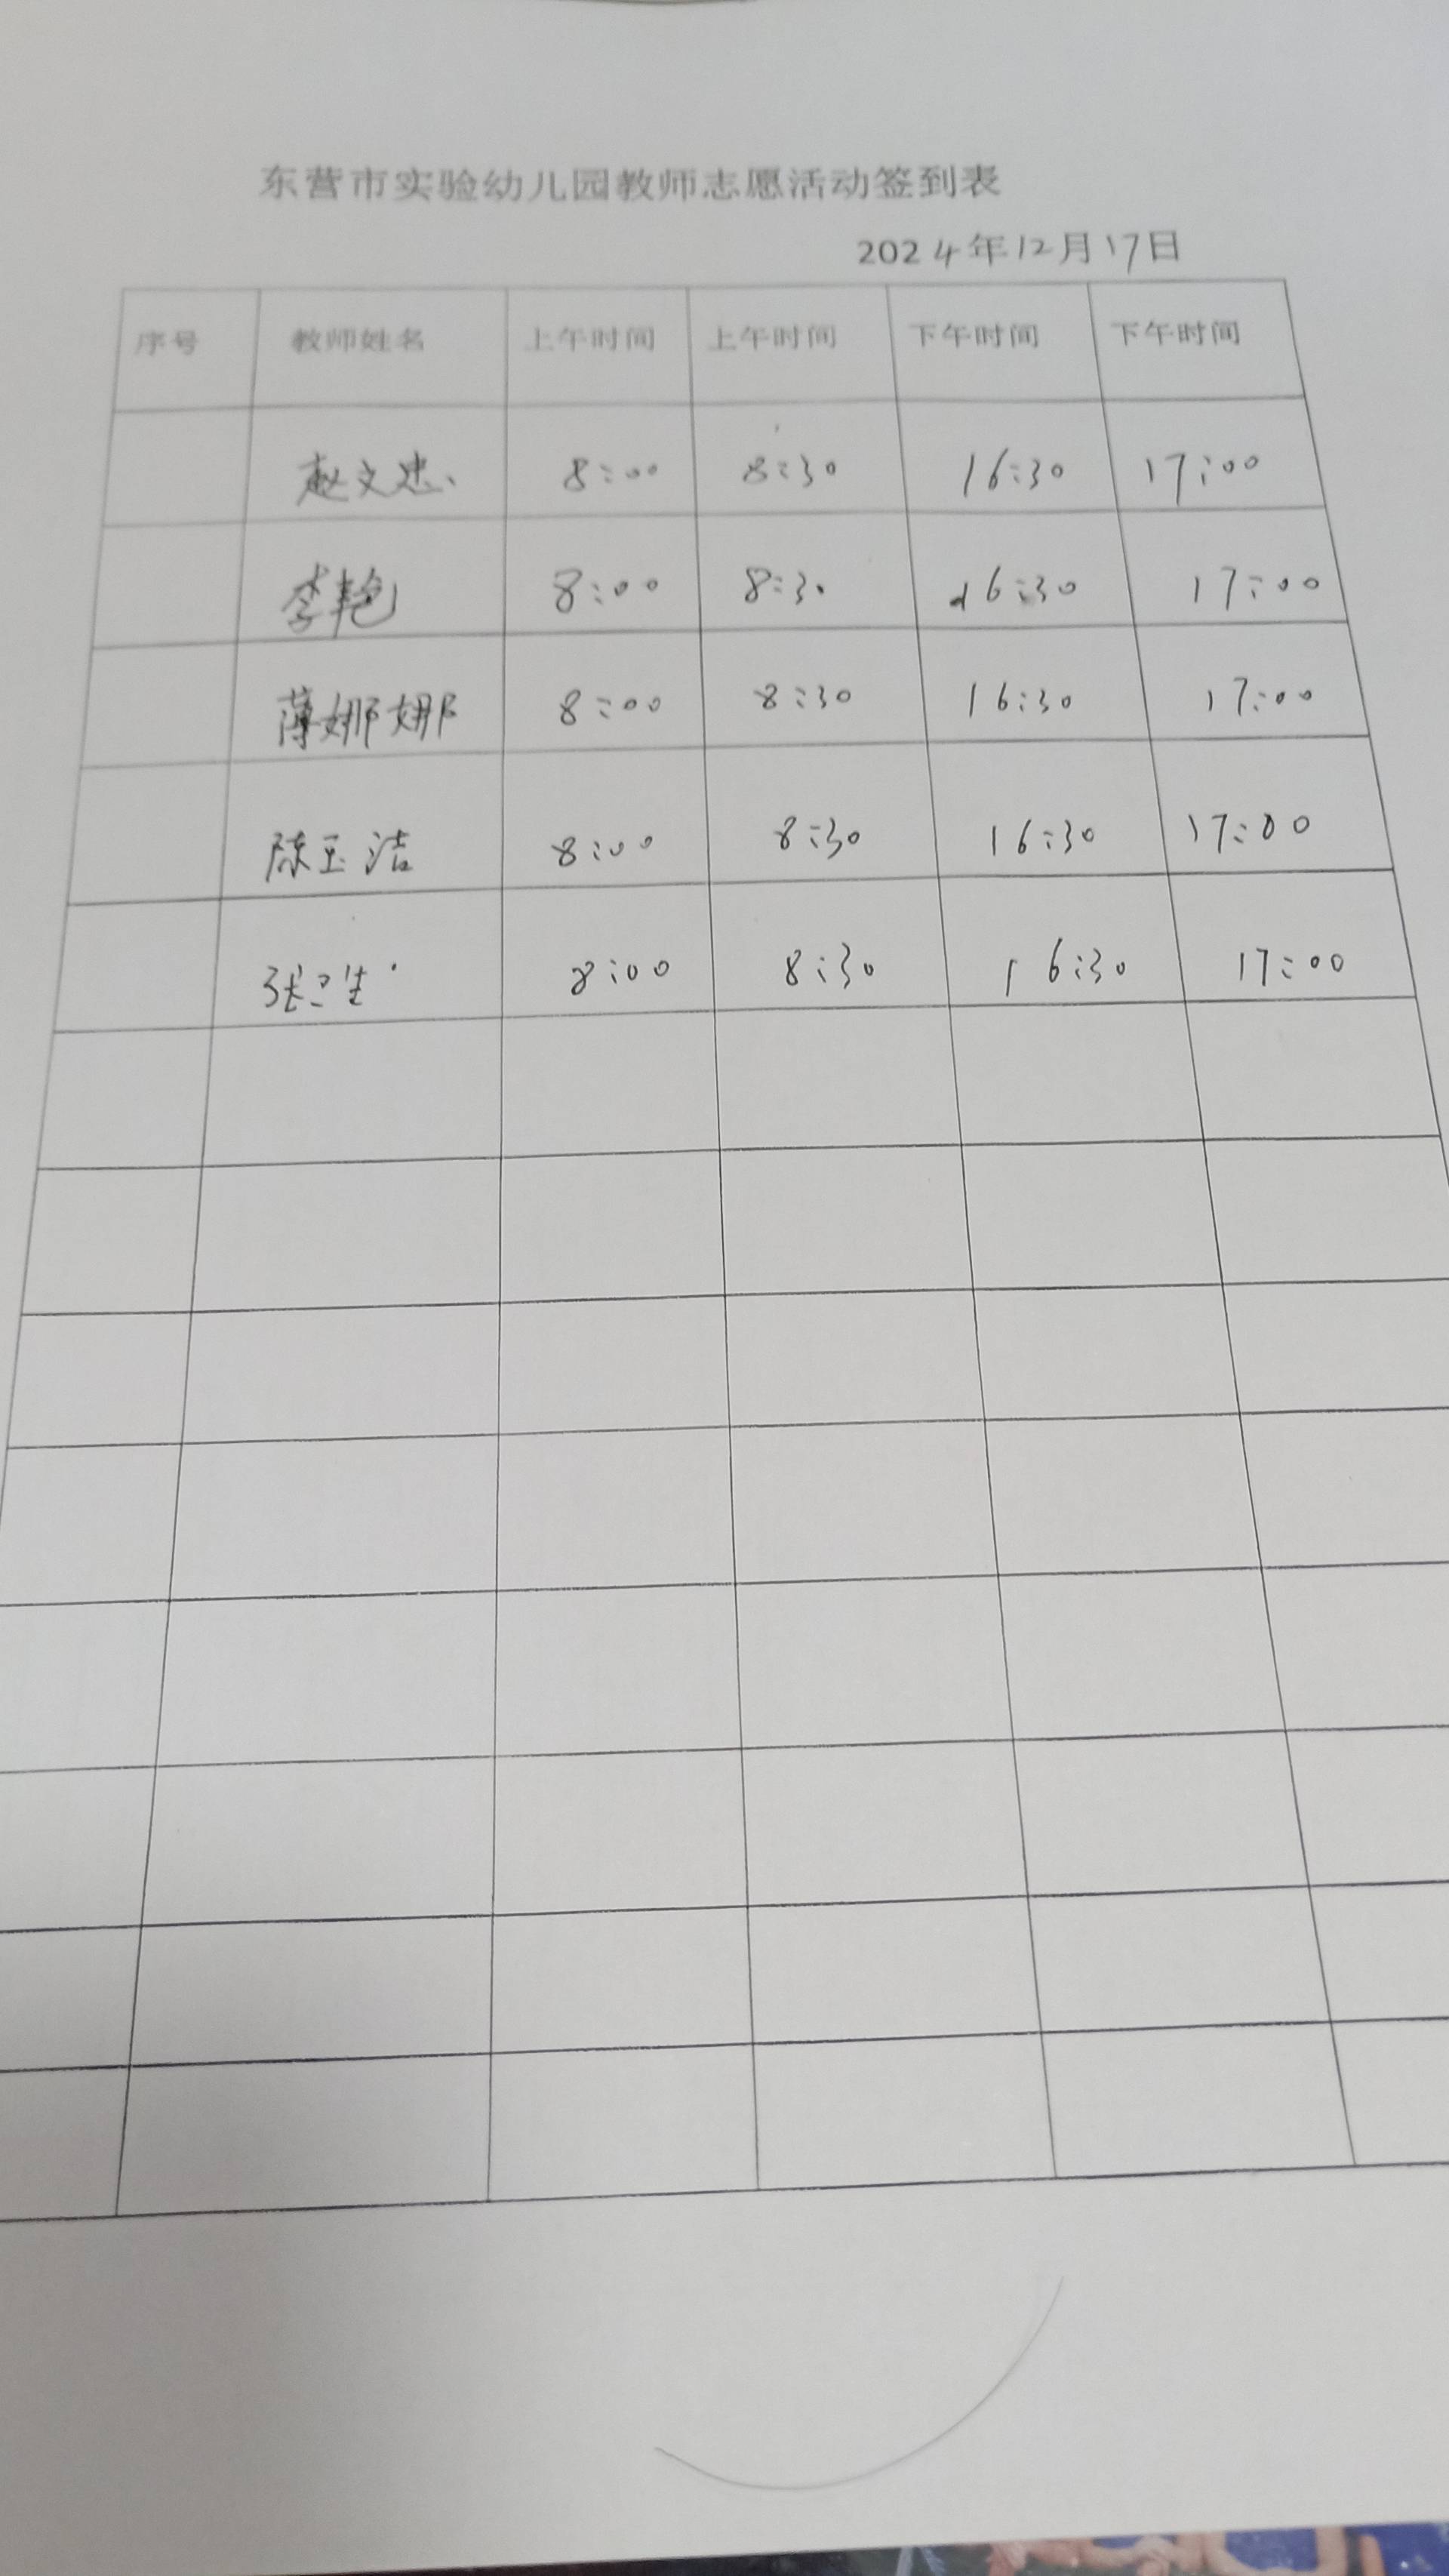 东营市实验幼儿园教师志愿活动签到表
2024年12月17日
序号 教师姓名 上午时间 上午时间 下午时间 下午时间
赵文忠 8:00 8:30 16:30 17:00
李艳 8:00 8:30 16:30 17:00
薄娜娜 8:00 8:30 16:30 17:00
陈玉洁 8:00 8:30 16:30 17:00
张卫生 8:00 8:30 16:30 17:00